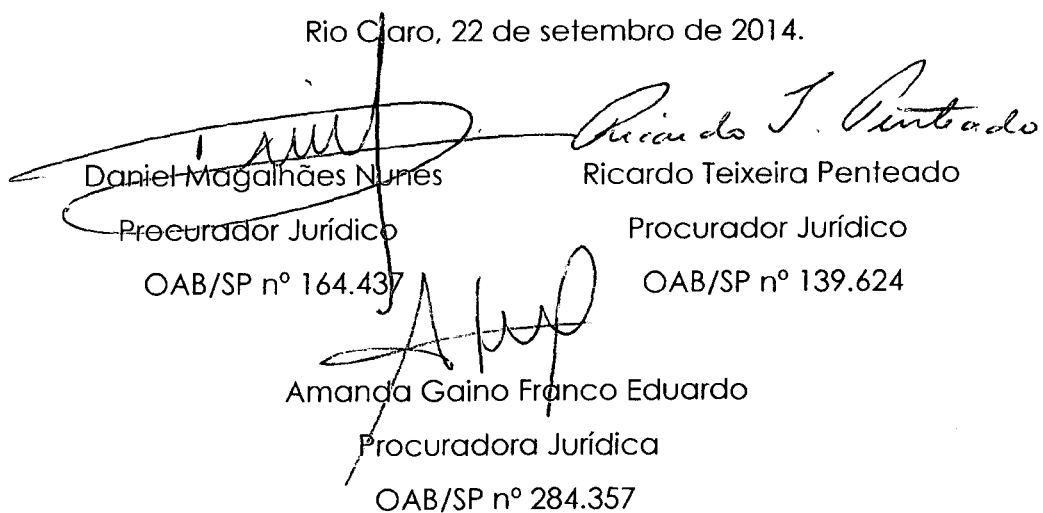 Rio Claro, 22 de setembro de 2014.
Ricardo T. Penteado
Daniel Magalhães Nunes
Procurador Jurídico
OAB/SP nº 164.437
Ricardo Teixeira Penteado
Procurador Jurídico
OAB/SP nº 139.624
Amanda Gaino Franco Eduardo
Procuradora Jurídica
OAB/SP nº 284.357